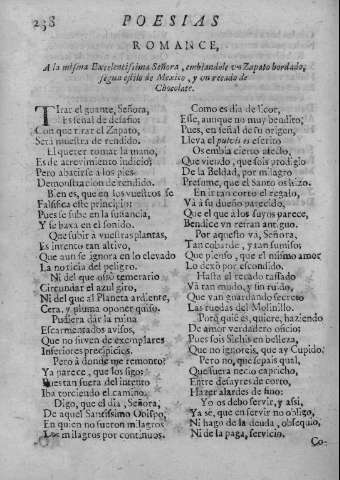 238 POESIAS
ROMANCE,
A la misma Excelentissima Señora, embiandole vn Zapato bordado,
segun estilo de Mexico, y vn recado de
Chocolate.
TIrar el guante, Señora,
Es señal de desafio;
Con que tirar el Zapato,
Será muestra de rendido.
El querer tomar la mano,
Es de atrevimiento indicio;
Pero abatirse à los pies,
Demonstracion de rendido.
Bien es, que en los vuestros se
Falsifica este principio;
Pues se sube en la sustancia,
Y se baxa en el sonido.
Que subir à vuestras plantas,
Es intento tan altivo,
Que aun se ignora en lo elevado
La noticia del peligro.
Ni del que osò temerario
Circundar el azul giro,
Ni del que al Planeta ardiente,
Cera, y pluma oponer quiso.
Pudiera dàr la ruina
Escarmentados avisos,
Que no sirven de exemplares
Inferiores precipicios.
Pero à donde me remonto?
Ya parece, que los sigo;
Pues tan fuera del intento
Iba torciendo el camino.
Digo, que el dia, Señora,
De aquel Santissimo Obispo,
En quien no fueron milagros
Los milagros por continuos.
Como es dia de licor,
Esse, aunque no muy bendito;
Pues, en señal de su origen,
Lleva el pulvis es escrito
Os embia cierto afecto,
Que viendo, que sois prodigio
De la Beldad, por milagro
Presume, que el Santo os hizo.
En èl tan corto el regalo,
Và à su dueño parecido,
Que el que à los suyos parece,
Bendice vn refran antiguo.
Por aquesto và, Señora,
Tan cobarde, y tan sumiso;
Que pienso, que el mismo amor
Lo dexò por escondido.
Hasta el recado tassado
Và tan mudo, y sin ruido,
Que van guardando secreto
Las ruedas del Molinillo.
Porq̃ quiè es, quiere, haziendo
De amor verdadero oficio;
Pues sois Sichis en belleza,
Que no ignoreis, que ay Cupido.
Pero no, que sepais qual,
Que fuera necio capricho,
Entre desayres de corto,
Hazer alardes de fino:
Yo os debo servir, y assi,
Ya se, que en servir no obligo,
Ni hago de la deuda, obsequio,
Ni de la paga, servicio.
Co-